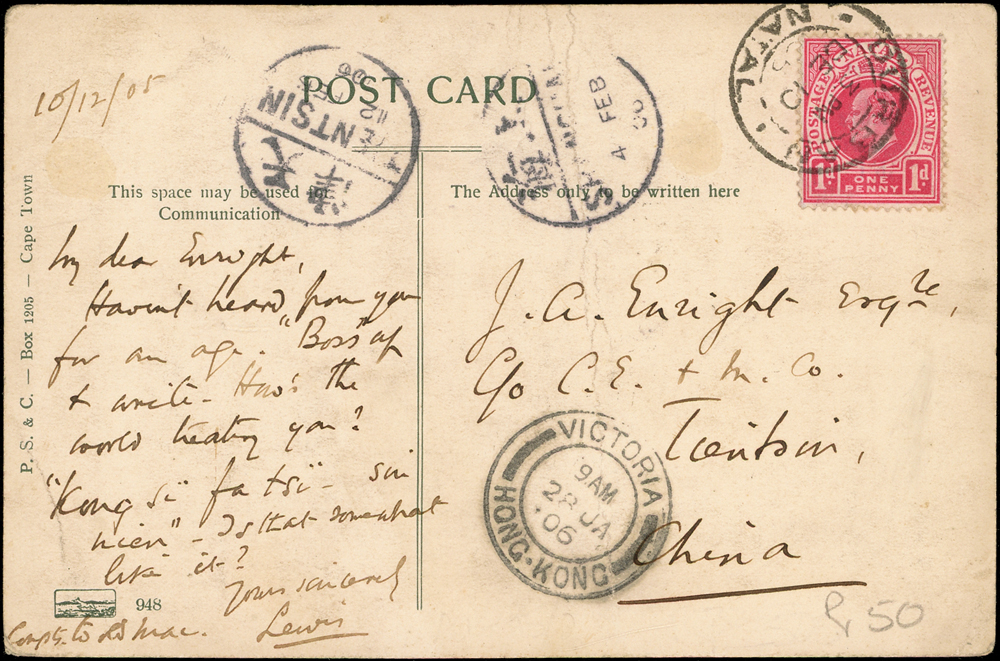 10/12/05
POST CARD
This space may be used for
Communication
The Address only to be written here
P. S. & C. — Box 1205 — Cape Town
My dear Enright,
Havin't heard from you
for an age. "Boss" up
& write - How's the
world treating you?
"Kong si fa tsi - sin
nien" - Is that somewhat
like it?
Yours sincerely
Lewis
948
J. A. Enright Esqre,
C/o C. E. & M. Co.
Tientsin,
China
NATAL
POSTAGE
REVENUE
1d
ONE
PENNY
1d
TIENTSIN
天
津
4 FEB
06
VICTORIA
9 AM
28 JA
06
HONG·KONG
50